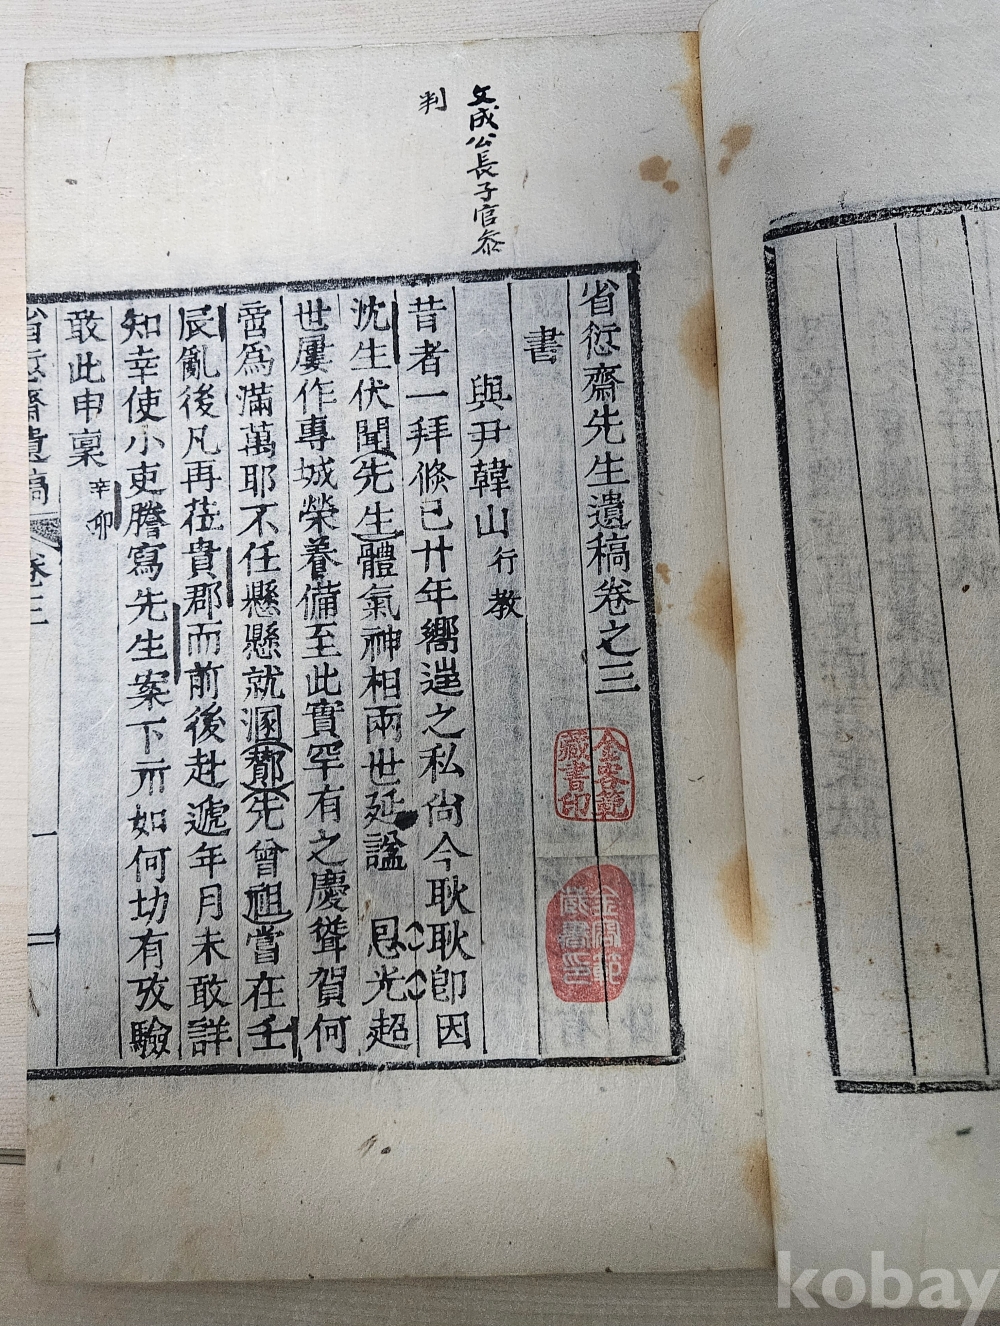 文成公長子官叅
判
省愆齋先生遺稿卷之三
書
與尹韓山行教
昔者一拜倐已廿年嚮𨓏之私尙今耿耿卽因
沈生伏聞先生體氣神相兩世延謐 恩光超
世屢作專城榮養備至此實罕有之慶聳賀何
啻爲滿萬耶不任懸懸就溷鄭先曾祖嘗在壬
辰亂後凡再莅貴郡而前後赴遞年月未敢詳
知幸使小吏謄寫先生案下示如何切有攷驗
敢此申稟辛卯
省愆齋遺稿 卷三 一
藏書印
kobay